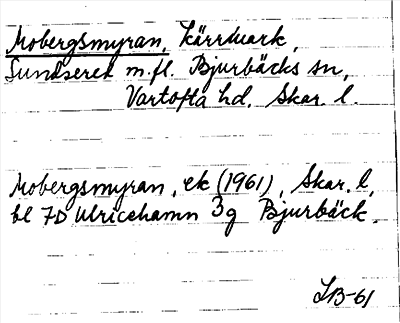 Mobergsmyran, kärrmark,
Sundseret m.fl. Bjurbäcks sn,
Vartofta hd. Skar. l.
Mobergsmyran, ek (1961), Skar. l,
bl 7D Ulricehamn 3g Bjurbäck.
LB-61